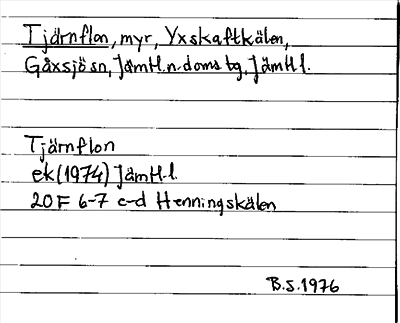 Tjärnflon, myr, Yxskaftkälen,
Gåxsjö sn, Jämtl.n.doms tg, Jämtl.
Tjärnflon
ek (1974) Jämtl.
20F 6-7 c-d Henningskälen
B.S. 1976